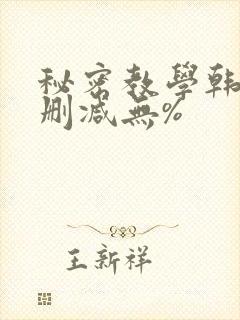 秘密教學韩
删减無%
王新祥